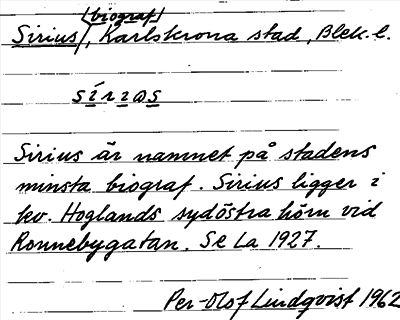 (biograf)
Sirius, Karlskrona stad, Blek. l.
Sirius är namnet på stadens
minsta biograf. Sirius ligger i
kv. Hoglands sydöstra hörn vid
Ronnebygatan. Se La 1927.
Per-Olof Lindqvist 1962